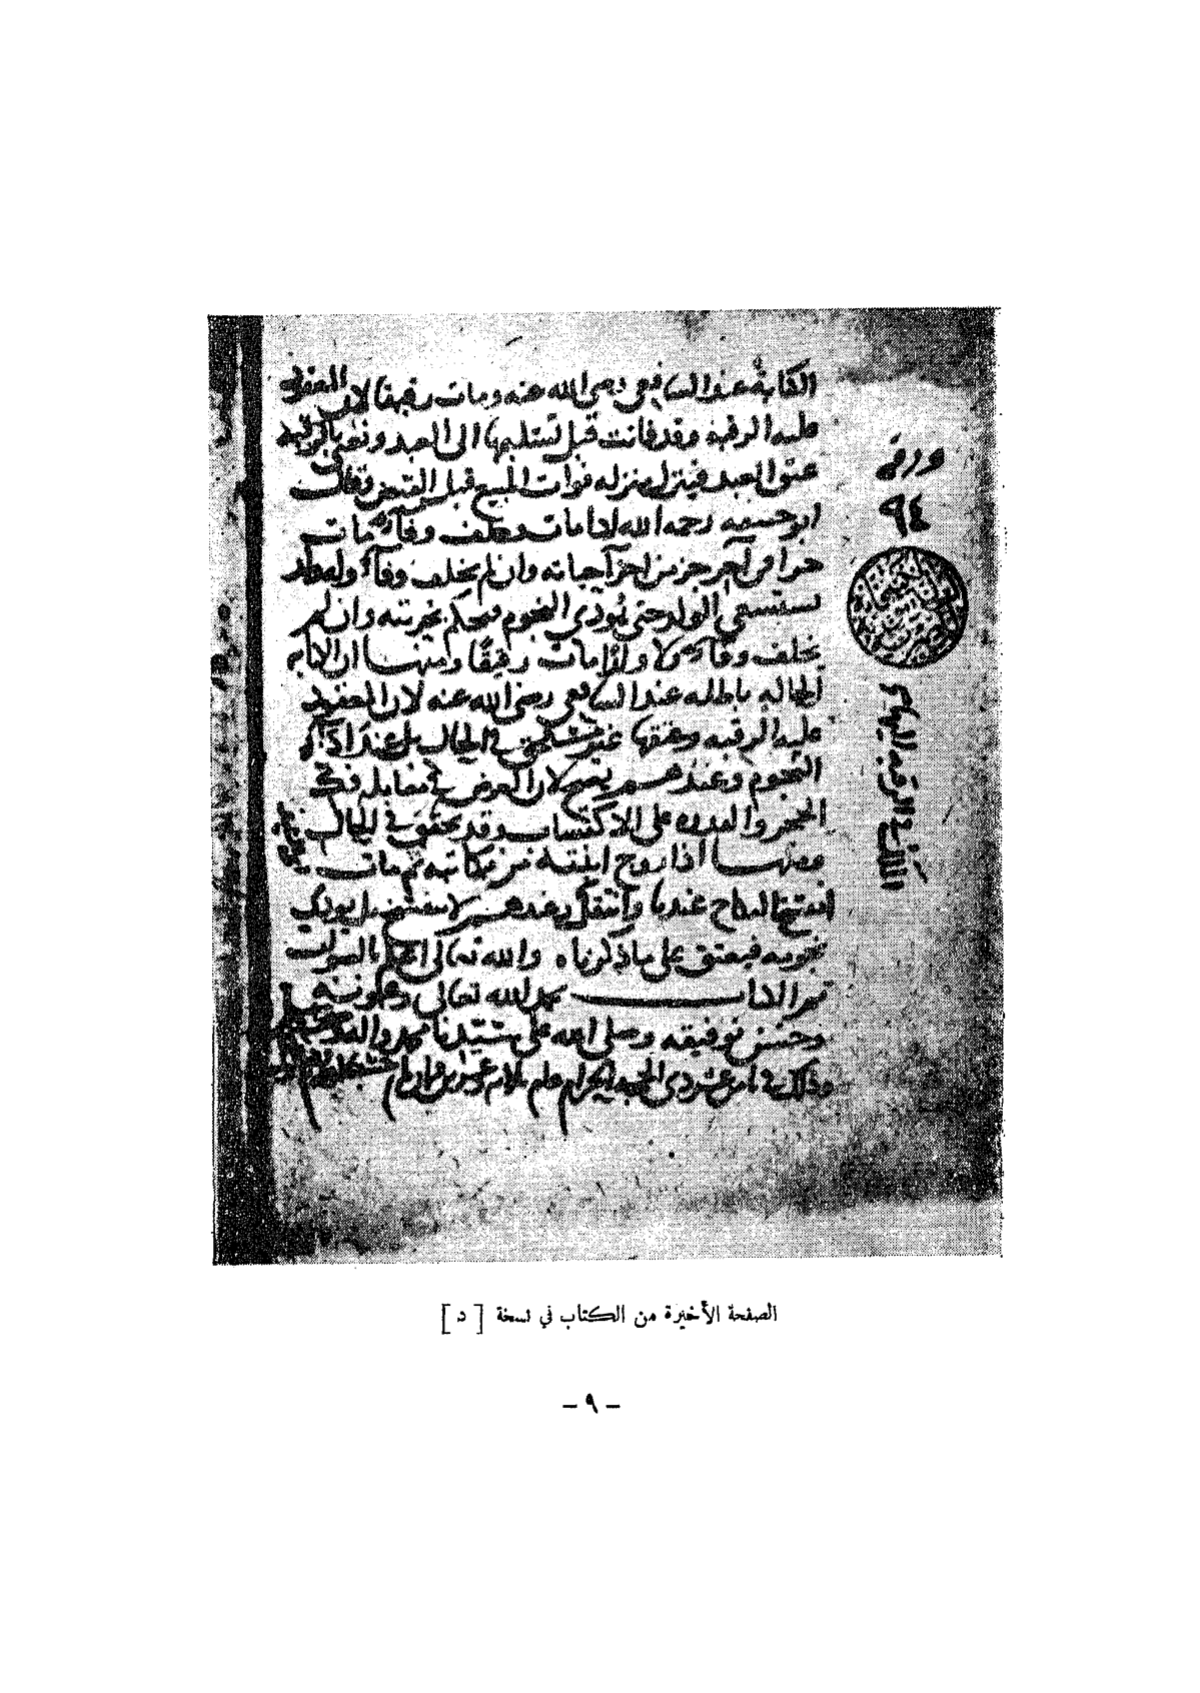 الكتابة عند الشافعي رضي الله عنه ومات رقيقا لان المعقود
عليه الرقبه وقد فاتت قبل تسليمها الى العبد
عتق العبد فينزل منزله فوات المبيع قبل القبض وقال
ابو حنيفه رحمه الله اذا مات وخلف وفآء مات
حرا في آخر جزء من اجزآ حياته وان لم يخلف وفآء وله ولد
يستسعى الولد حتى يؤدي النجوم فيحكم بحريته وان لم
يخلف وفآء ولا ولدا مات رقيقا ومنها ان الكتابه
الحاله باطله عند الشافعي رضي الله عنه لان المعقود
عليه الرقبه وعتقها غير متحقق في الحال بل عند ادآء
النجوم وعندهم يصح لان العوض في مقابله فك
الحجر والقدره على الاكتساب وقد تحقق في الحال
ومنها اذا زوج ابنته من مكاتبه ثم مات
انفسخ النكاح عندنا وعندهم لا ينفسخ بل يؤدي
نجومه فيعتق على ما ذكرناه والله تعالى اعلم بالصواب
تم الكتاب بحمد الله تعالى وعونه
وحسن توفيقه وصلى الله على سيدنا محمد واله
وذلك في ثامن عشر ذي الحجه الحرام عام
ورقة
٩٤
الصفحة الأخيرة من الكتاب في نسخة [ د ]
– ٩ –